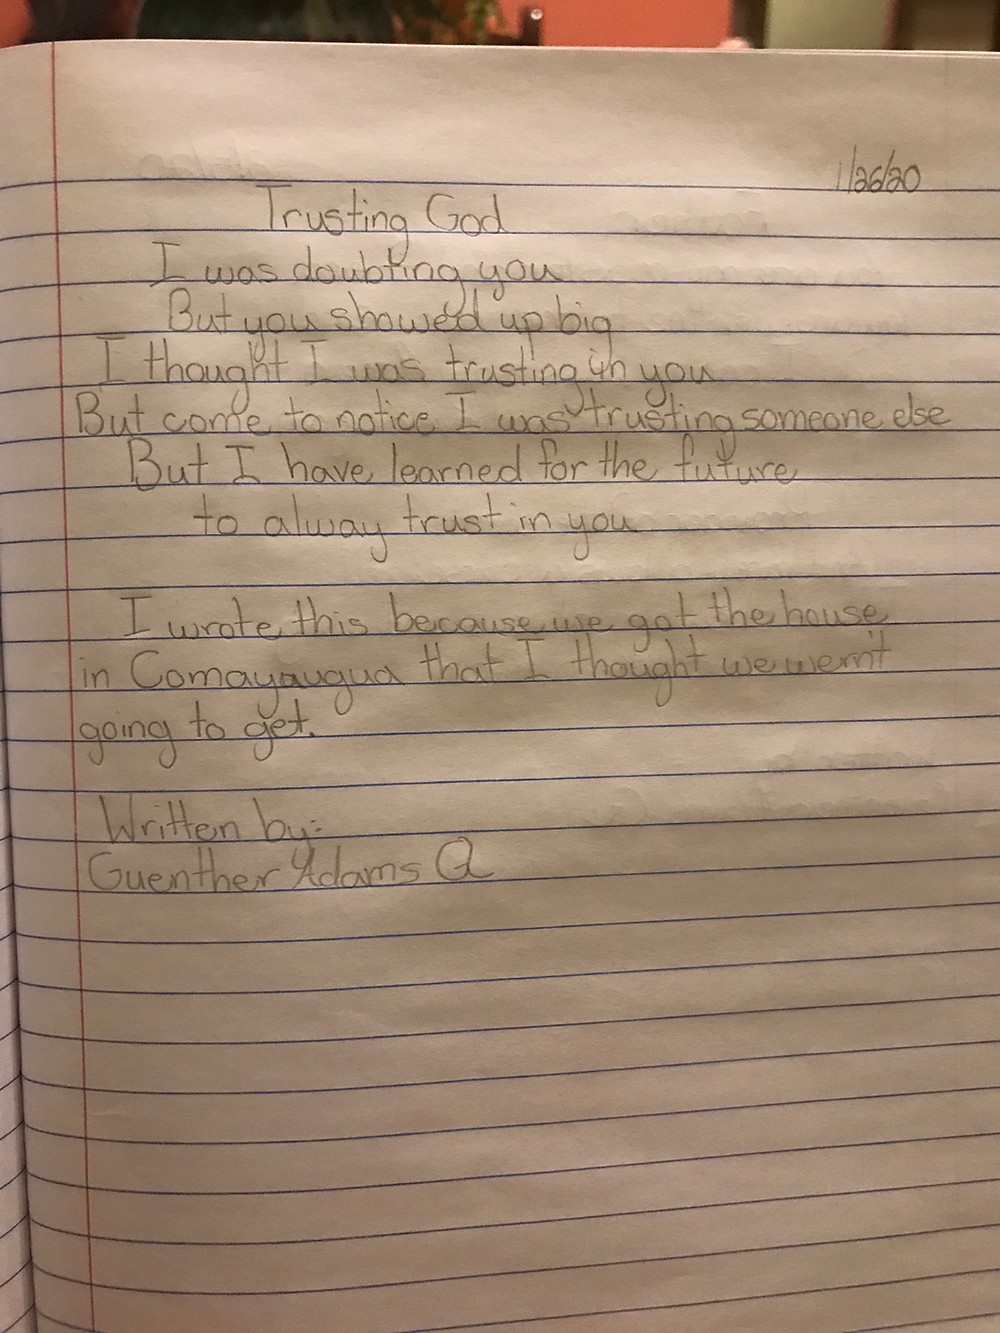 1/26/20
Trusting God
I was doubting you
But you showed up big
I thought I was trusting in you
But come to notice I was trusting someone else
But I have learned for the future
to alway trust in you
I wrote this because we got the house
in Comayaugua that I thought we wern't
going to get.
Written by:
Guenther Adams Q